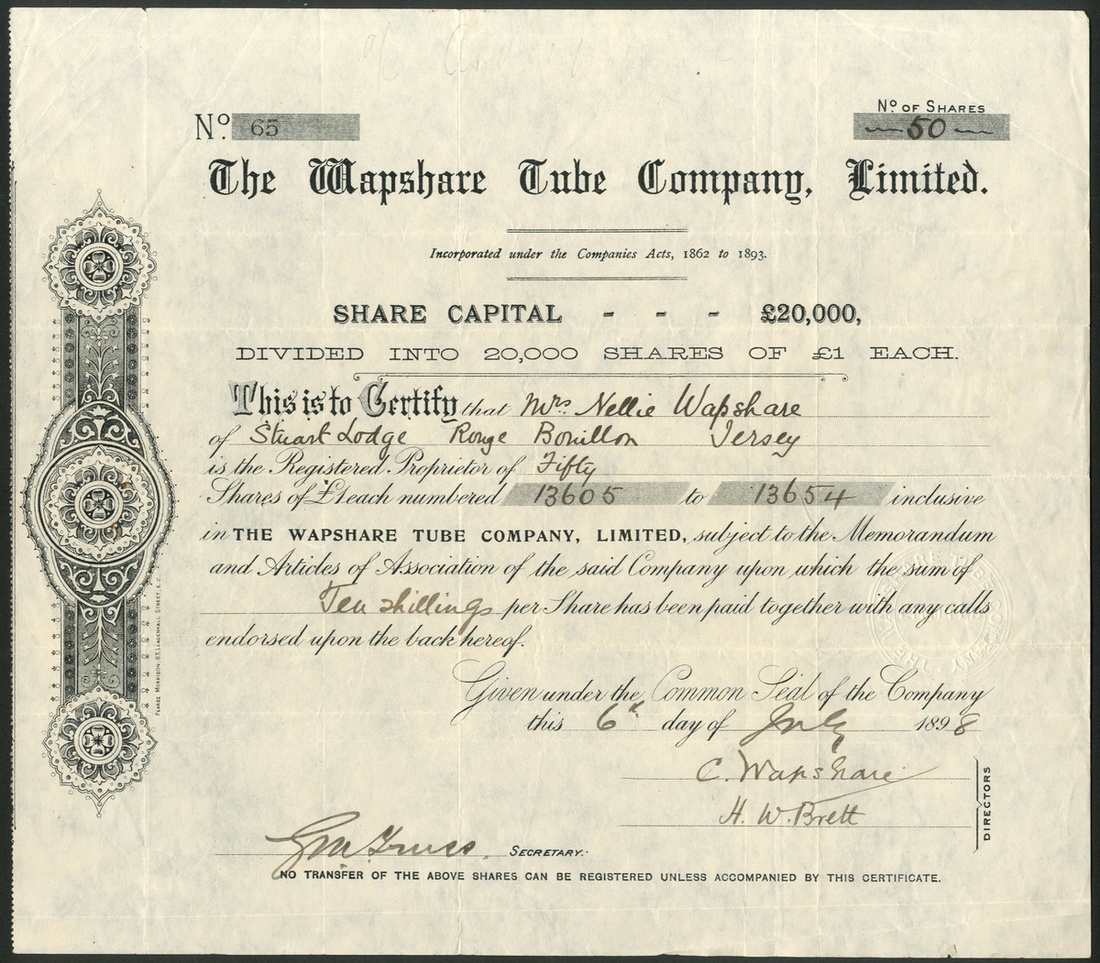 Nº. 65
Nº OF SHARES
50
The Wapshare Tube Company, Limited.
Incorporated under the Companies Acts, 1862 to 1893.
SHARE CAPITAL - - - £20,000,
DIVIDED INTO 20,000 SHARES OF £1 EACH.
This is to Certify that Mrs. Nellie Wapshare
of Stuart Lodge Rouge Bouillon Jersey
is the Registered Proprietor of Fifty
Shares of £1 each numbered 13605 to 13654 inclusive
in THE WAPSHARE TUBE COMPANY, LIMITED, subject to the Memorandum
and Articles of Association of the said Company upon which the sum of
Ten shillings per Share has been paid together with any calls
endorsed upon the back hereof.
Given under the Common Seal of the Company
this 6th day of July 1898
C. Wapshare
H. W. Brett
DIRECTORS
SECRETARY.
NO TRANSFER OF THE ABOVE SHARES CAN BE REGISTERED UNLESS ACCOMPANIED BY THIS CERTIFICATE.
PEARSE MORRISON 63, LEADENHALL STREET, E.C.